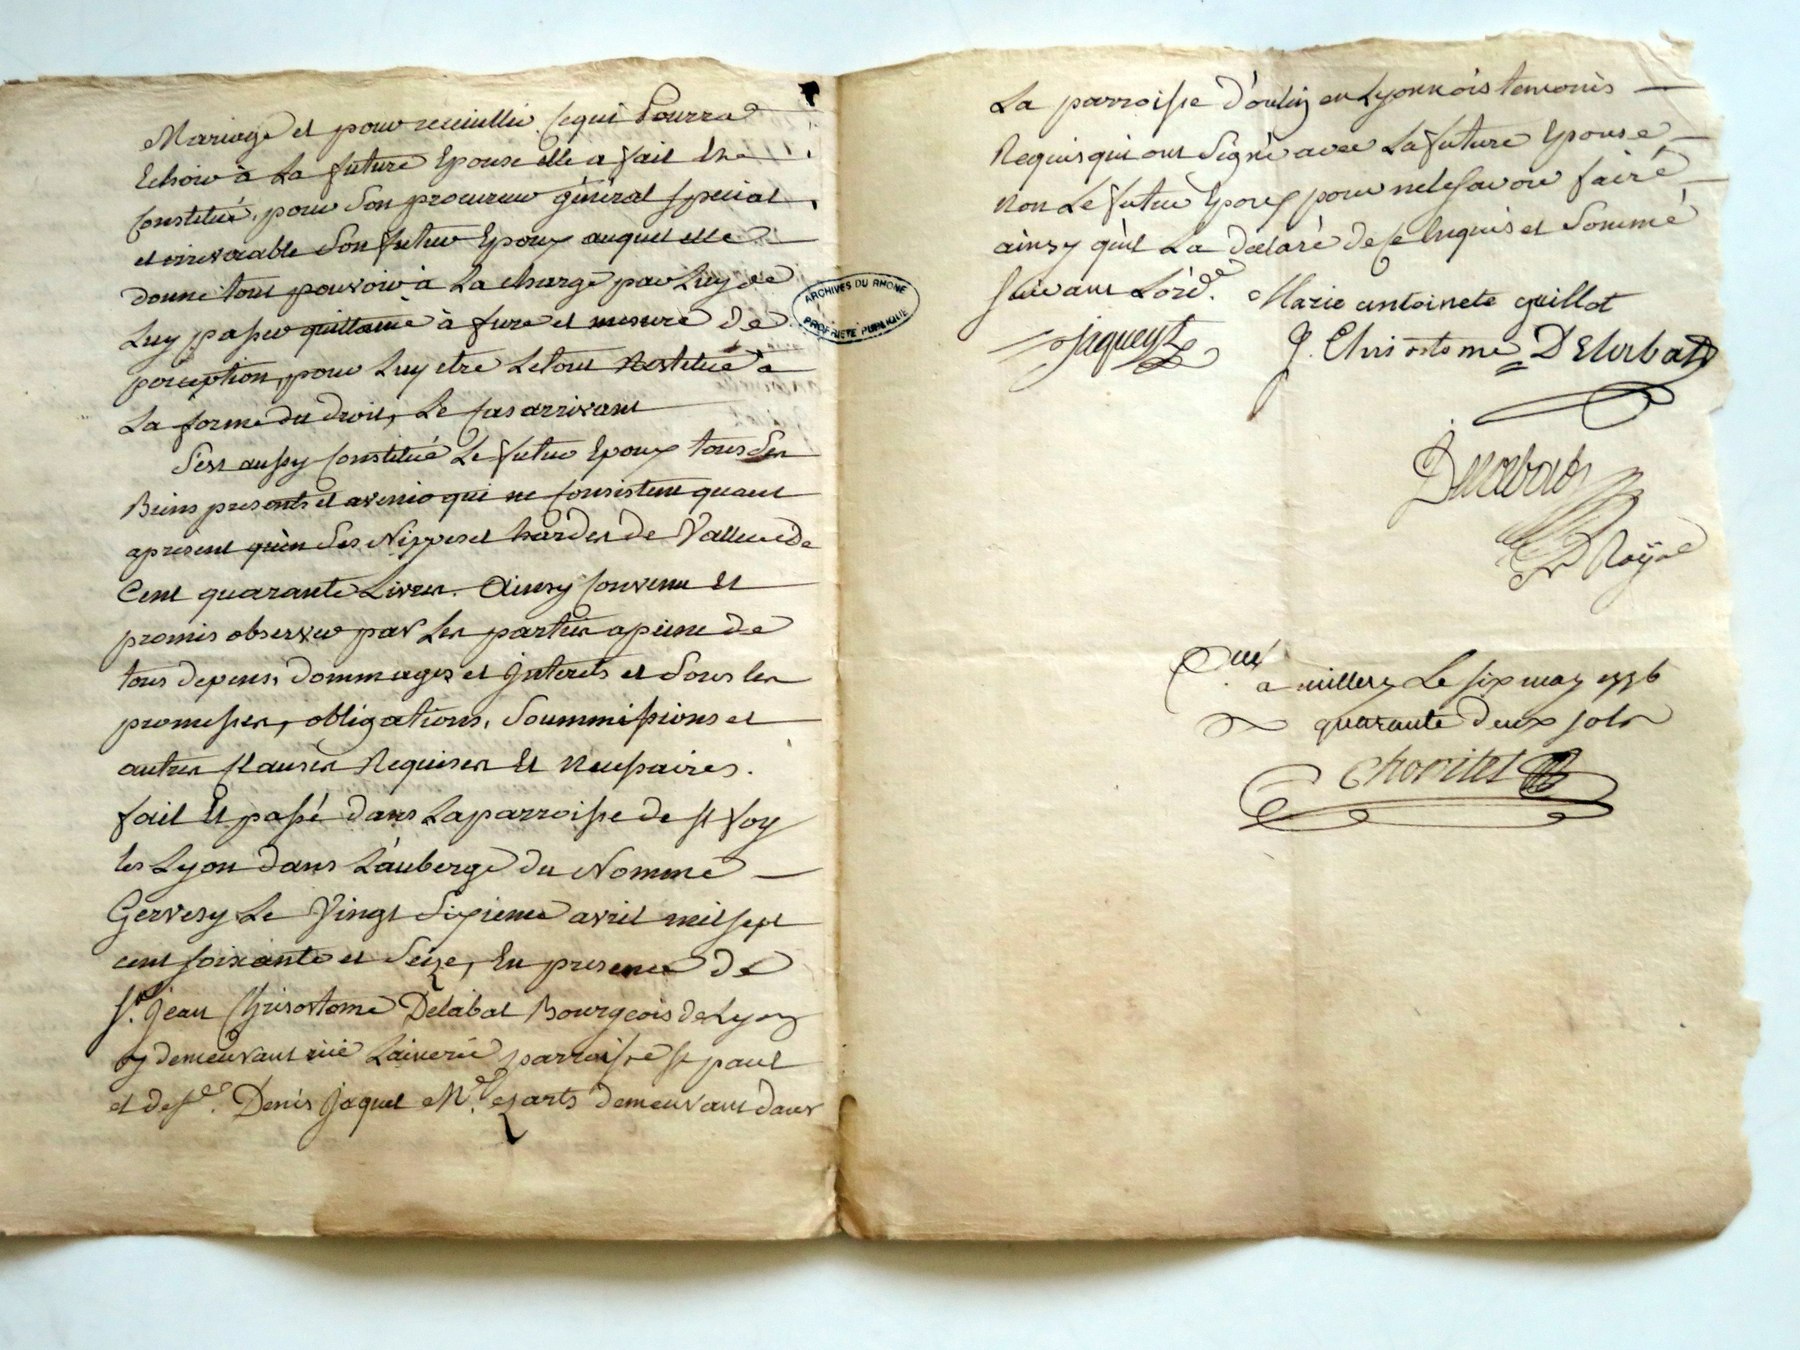 Mariage et pour recuillir ce qui Pourra
Echoir à La future Epouse elle a fait Et
Constitué, pour Son procureur général special
et irrevocable Son futur Epoux auquel elle
donne tout pouvoir à La charge par Luy de
Luy passer quittance à fure et mesure de
perception, pour Luy etre Letout Restitué à
La forme du droit, Le Cas arrivant
S'est aussy Constitué Le futur Epoux tous Ses
Biens presents et avenir qui ne Consistent quant
apresent qu'en Ses Nippes et hardes de Valleur de
Cent quarante Livres. Ainsy Convenu Et
promis observer par Les parties apeine de
tous depens, dommages et Interets et Sous les
promesses, obligations, Soummissions et
autres Clauses Requises Et Necessaires.
fait Et passé dans La parroisse de St foy
les Lyon dans L'auberge du Nommé
Gervesy Le Vingt Sixieme avril mil sept
cent soixante et Seize, En presence de
Sr. Jean Chrisostome Delabat Bourgeois de Lyon
y demeurant rue Lainerie parroisse St paul
et de Sr. Denis Jaquet Me. es arts demeurant dans
ARCHIVES DU RHONE
PROPRIETE PUBLIQUE
La parroisse d'oulin en Lyonnois temoins
Requis qui ont Signé avec La future Epouse
non Le futur Epoux pour ne le Savoir faire
ainsy qu'il La déclaré de ce Enquis et Sommé
Suivant L'ord.e Marie antoinete guillot
Jaquet J. Chrisostome Delabat
Royné
a millery Le six may 1776
quarante deux sols